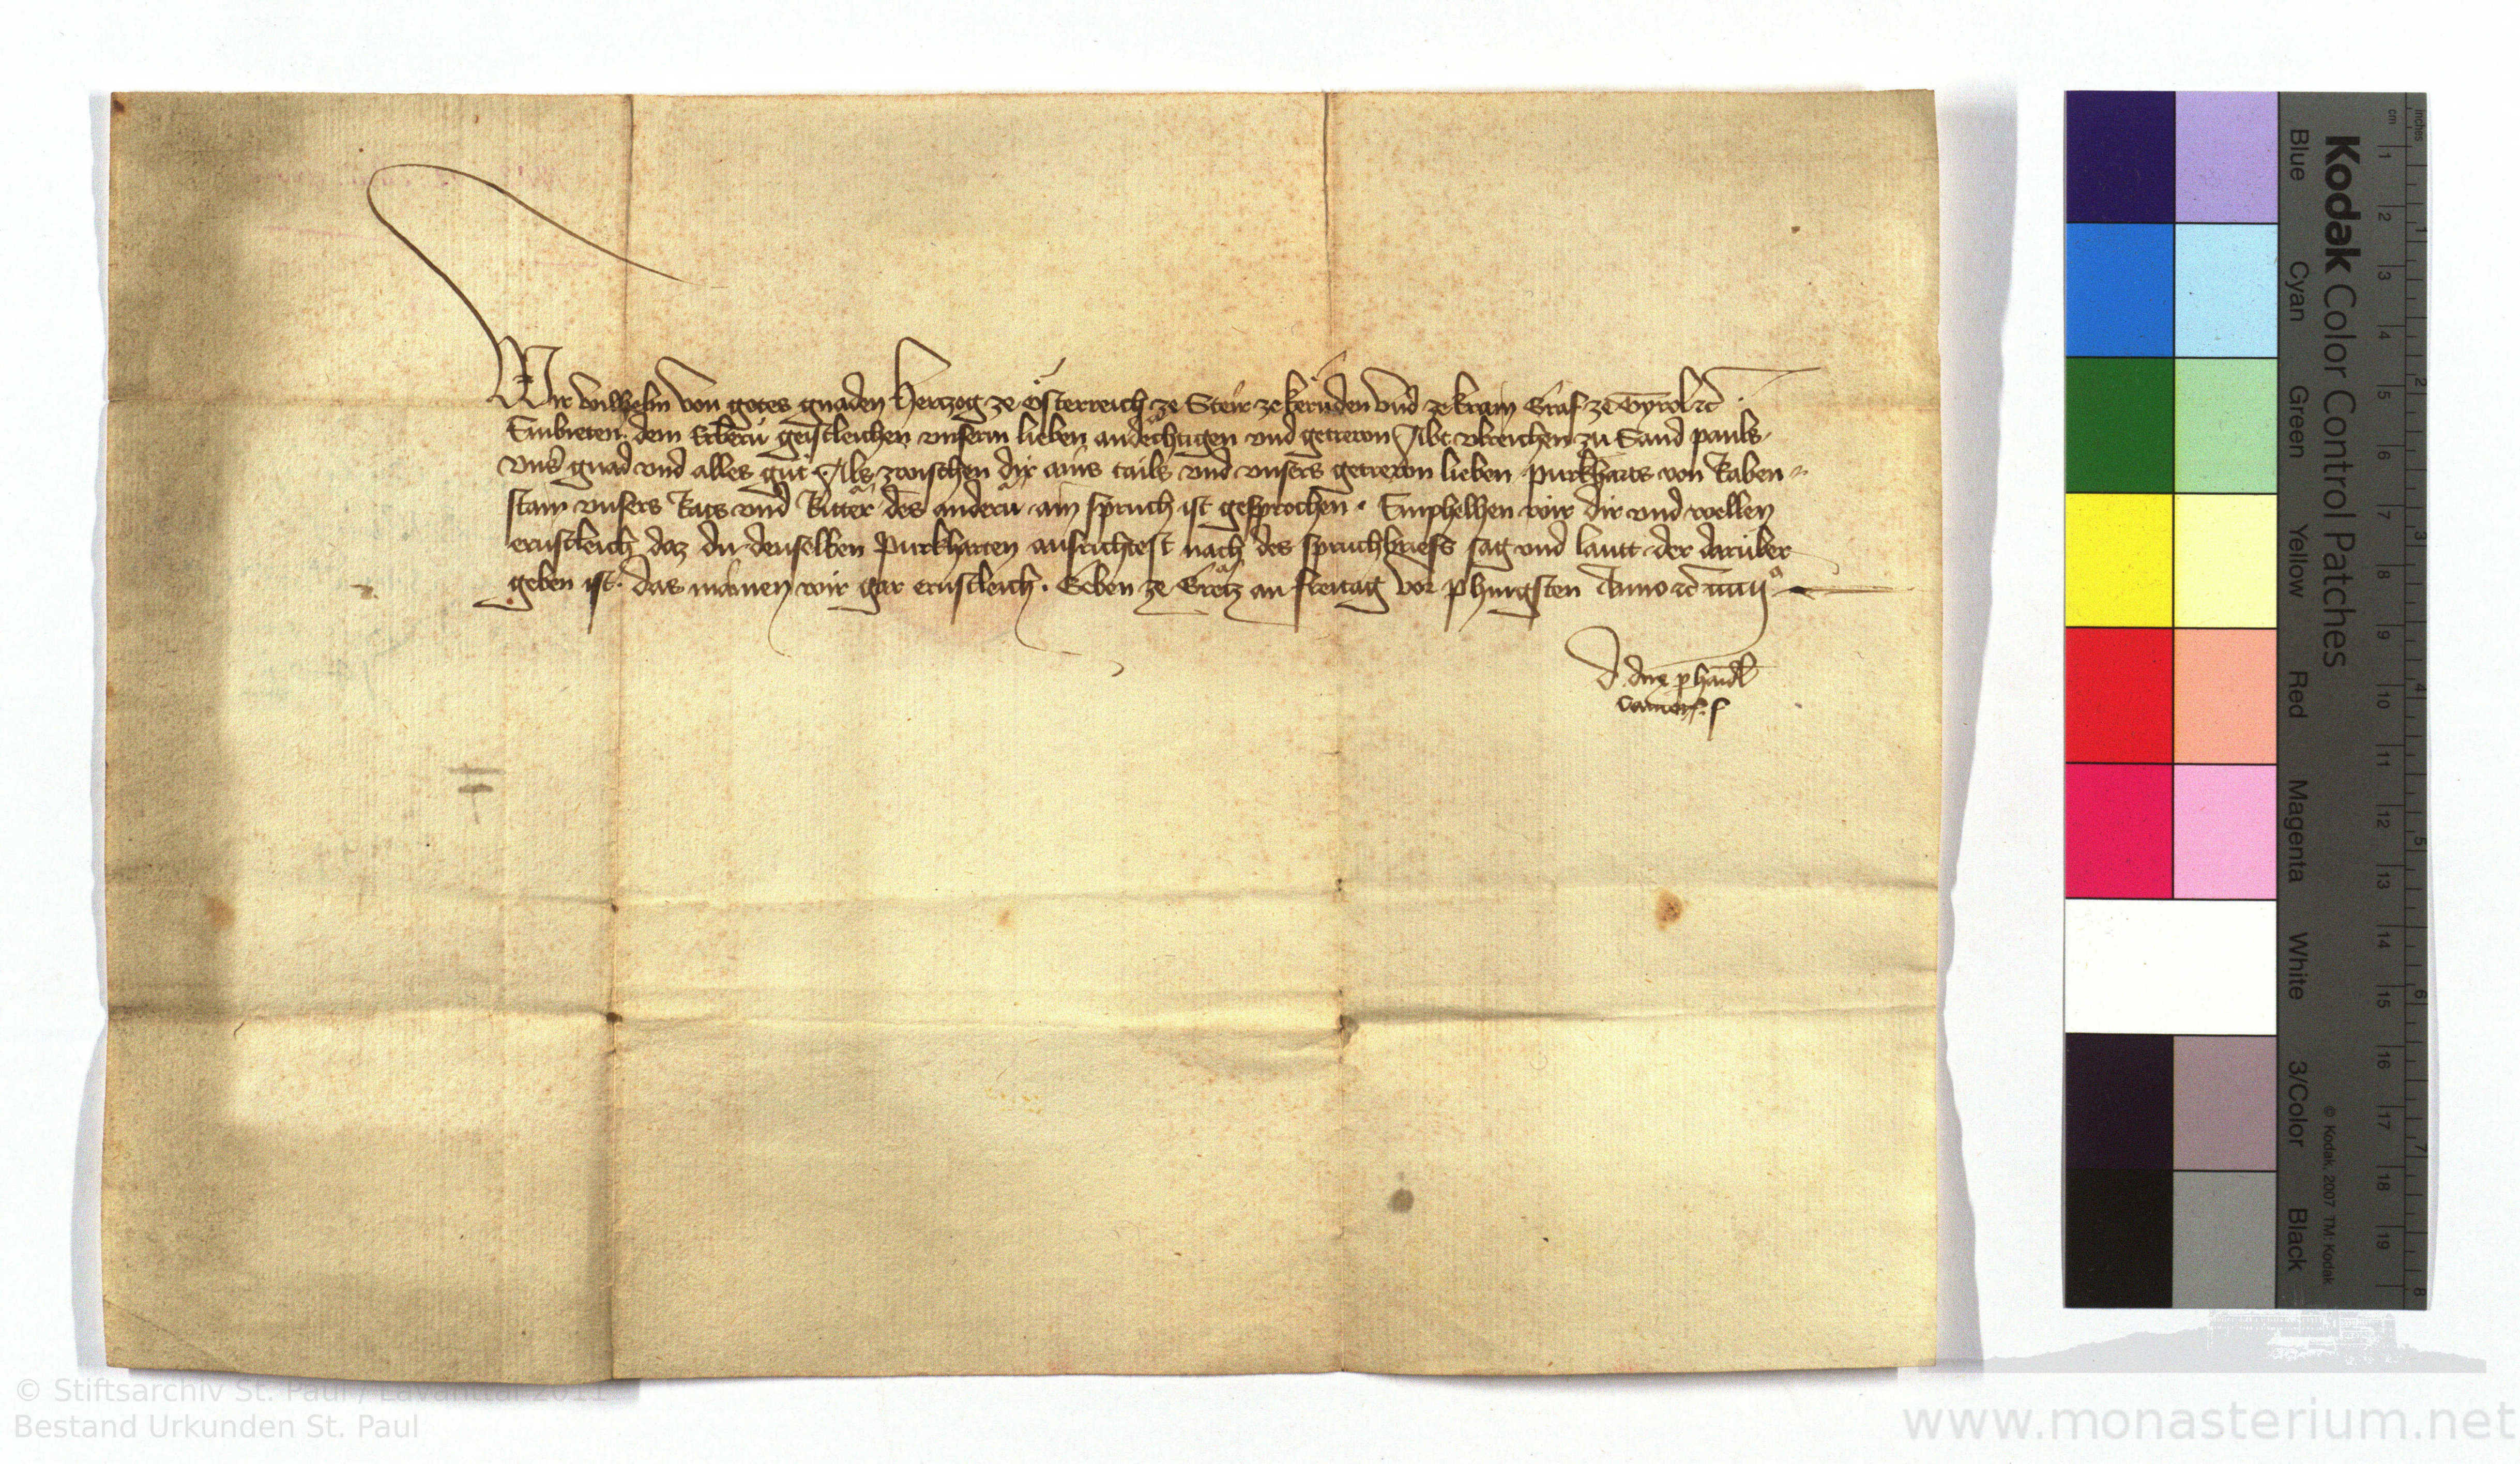 Wir Wilhelm von gotes gnaden Herczog ze Österreich ze Steir ze kernden vnd ze krain Graf ze Tyrol etc
Embieten dem Erbern geistleichen vnserm lieben andechtigen vnd getrewn Abt Vlreichen zu Sand pauls
vnser gnad vnd alles gut Als zwischen dir ains tails vnd vnsers getrewn lieben purkharts von Raben
stain vnsers Rats vnd Ritter des andern ain spruch ist gesprochen. Emphelhen wir dir vnd wellen
ernstleich daz du denselben purkharten ausrichtest nach des spruchbriefs sag vnd lautt der darüber
geben ist. das mainen wir gar ernstleich. Geben ze Gretz an freitag vor phingsten Anno etc
d. dux p
Kodak Color Control Patches
Blue Cyan Green Yellow Red Magenta White 3/Color Black
© Kodak, 2007 TM: Kodak
inches 1 2 3 4 5 6 7 8
cm 1 2 3 4 5 6 7 8 9 10 11 12 13 14 15 16 17 18 19
© Stiftsarchiv St. Paul / Lavanttal 2011
Bestand Urkunden St. Paul
www.monasterium.net